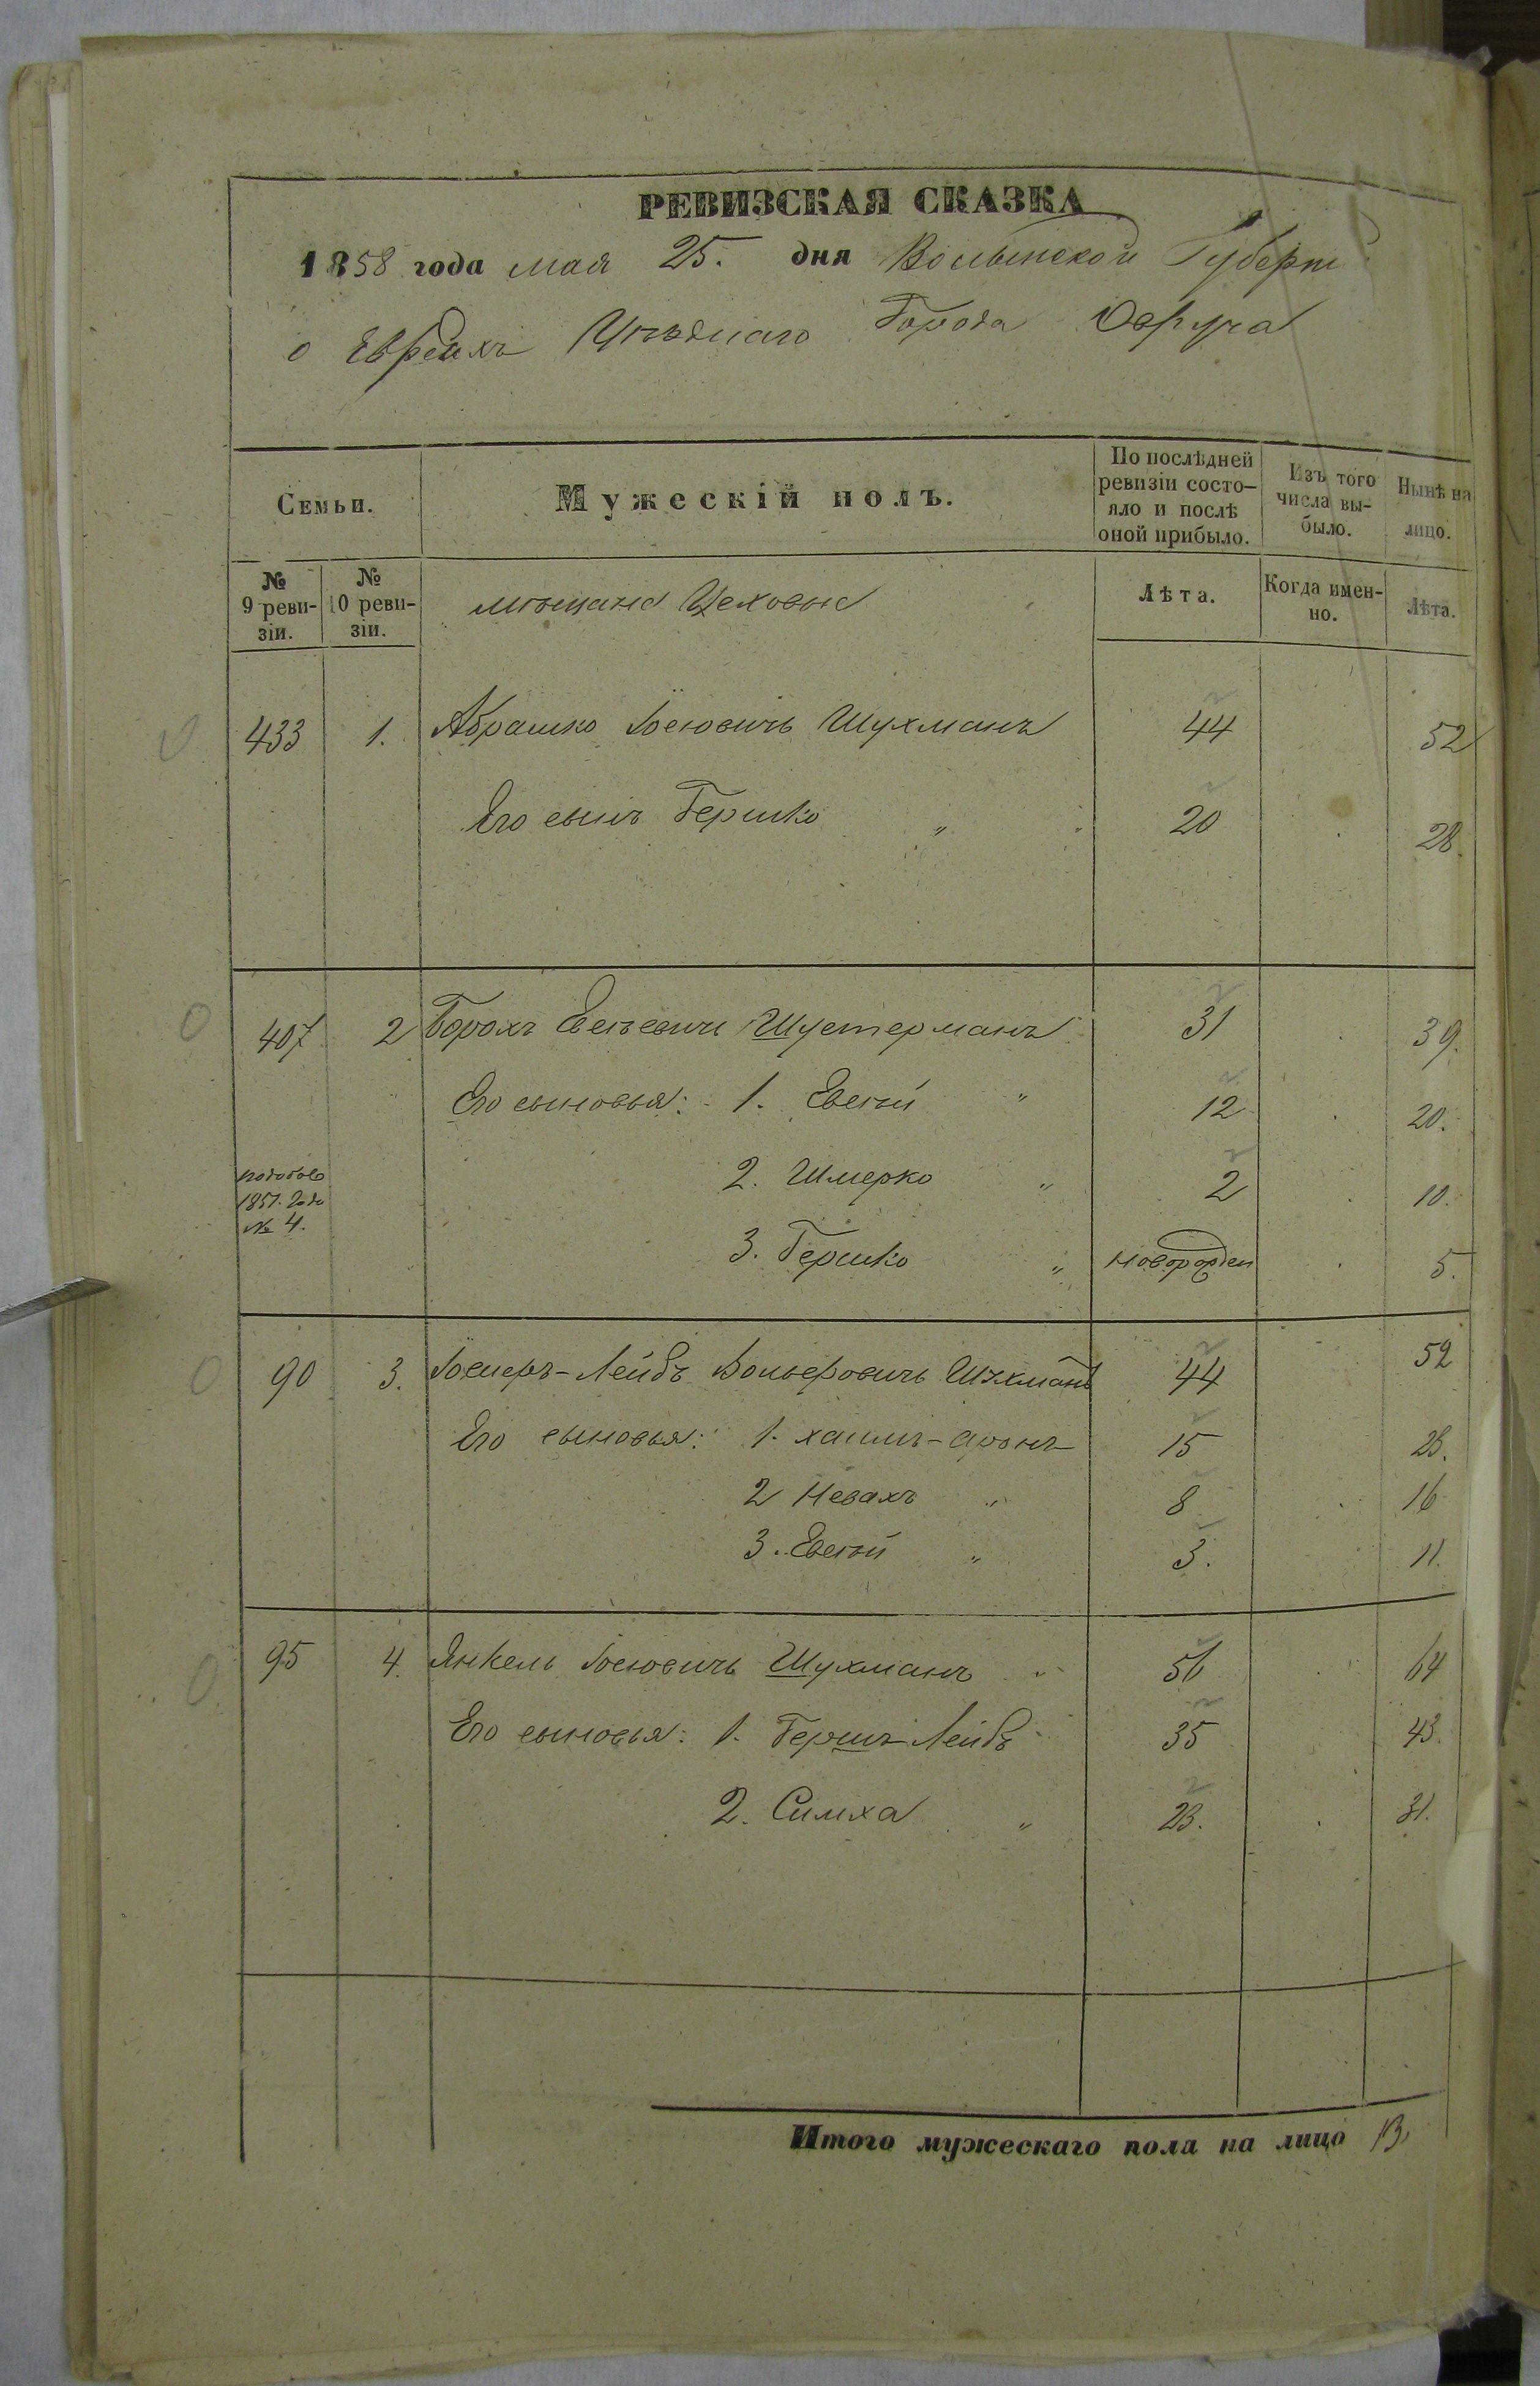 РЕВИЗСКАЯ СКАЗКА
1858 года мая 25. дня Волынской Губерн
о Евреяхъ Уѣзднаго Города Овруча
Семьи.
Мужескій полъ.
По послѣдней ревизіи состояло и послѣ оной прибыло.
Изъ того числа выбыло.
Нынѣ на лицо.
№ 9 ревизіи.
№ 10 ревизіи.
мѣщане Цеховые
Лѣта.
Когда именно.
Лѣта.
433 1. Абрашко Іосіовичъ Шухманъ 44 52
Его сынъ Гершко " 20 28.
407 2 Борохъ Евсѣевичъ Шустерманъ 31 39.
Его сыновья: 1. Евсѣй " 12 20.
2. Шмерко " 2 10.
1851. года
№ 4.
3. Гершко " новорожден 5.
90 3. -Лейбъ Вольфовичъ Шухманъ 44 52
Его сыновья: 1. хаимъ-аронъ 15 23.
2 Невахъ " 8 16
3. Евсѣй " 3. 11.
95 4. Янкель Іосіовичъ Шухманъ " 56 64
Его сыновья: 1. Гершъ Лейбъ 35 43.
2. Симха " 23. 31.
Итого мужескаго пола на лицо 13